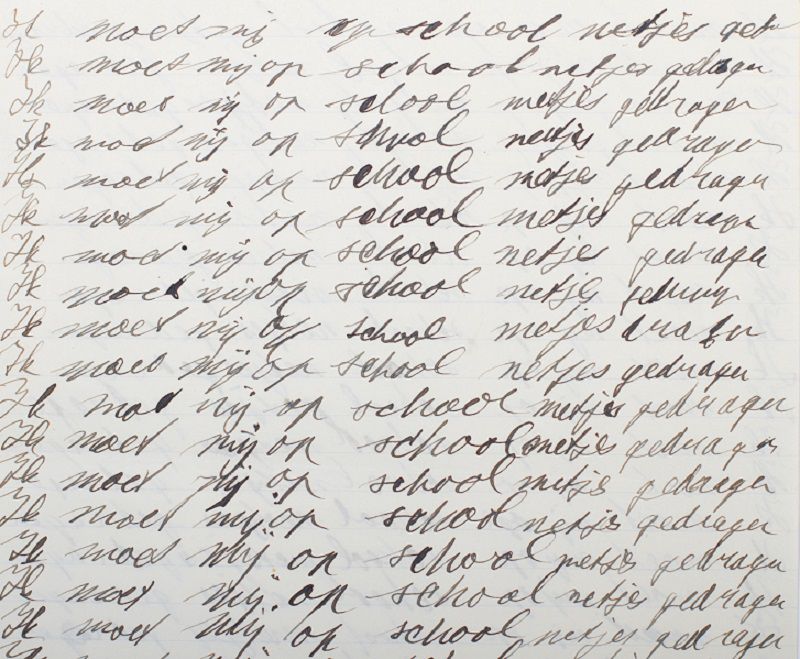 Ik moet mij op school netjes
Ik moet mij op school netjes gedragen
Ik moet mij op school netjes gedragen
Ik moet mij op school netjes gedragen
Ik moet mij op school netjes gedragen
Ik moet mij op school netjes gedragen
Ik moet mij op school netjes gedragen
Ik moet mij op school netjes
Ik moet mij op school netjes
Ik moet mij op school netjes gedragen
Ik moet mij op school netjes gedragen
Ik moet mij op school netjes gedragen
Ik moet mij op school netjes gedragen
Ik moet mij op school netjes gedragen
Ik moet mij op school netjes gedragen
Ik moet mij op school netjes gedragen
Ik moet mij op school netjes gedragen